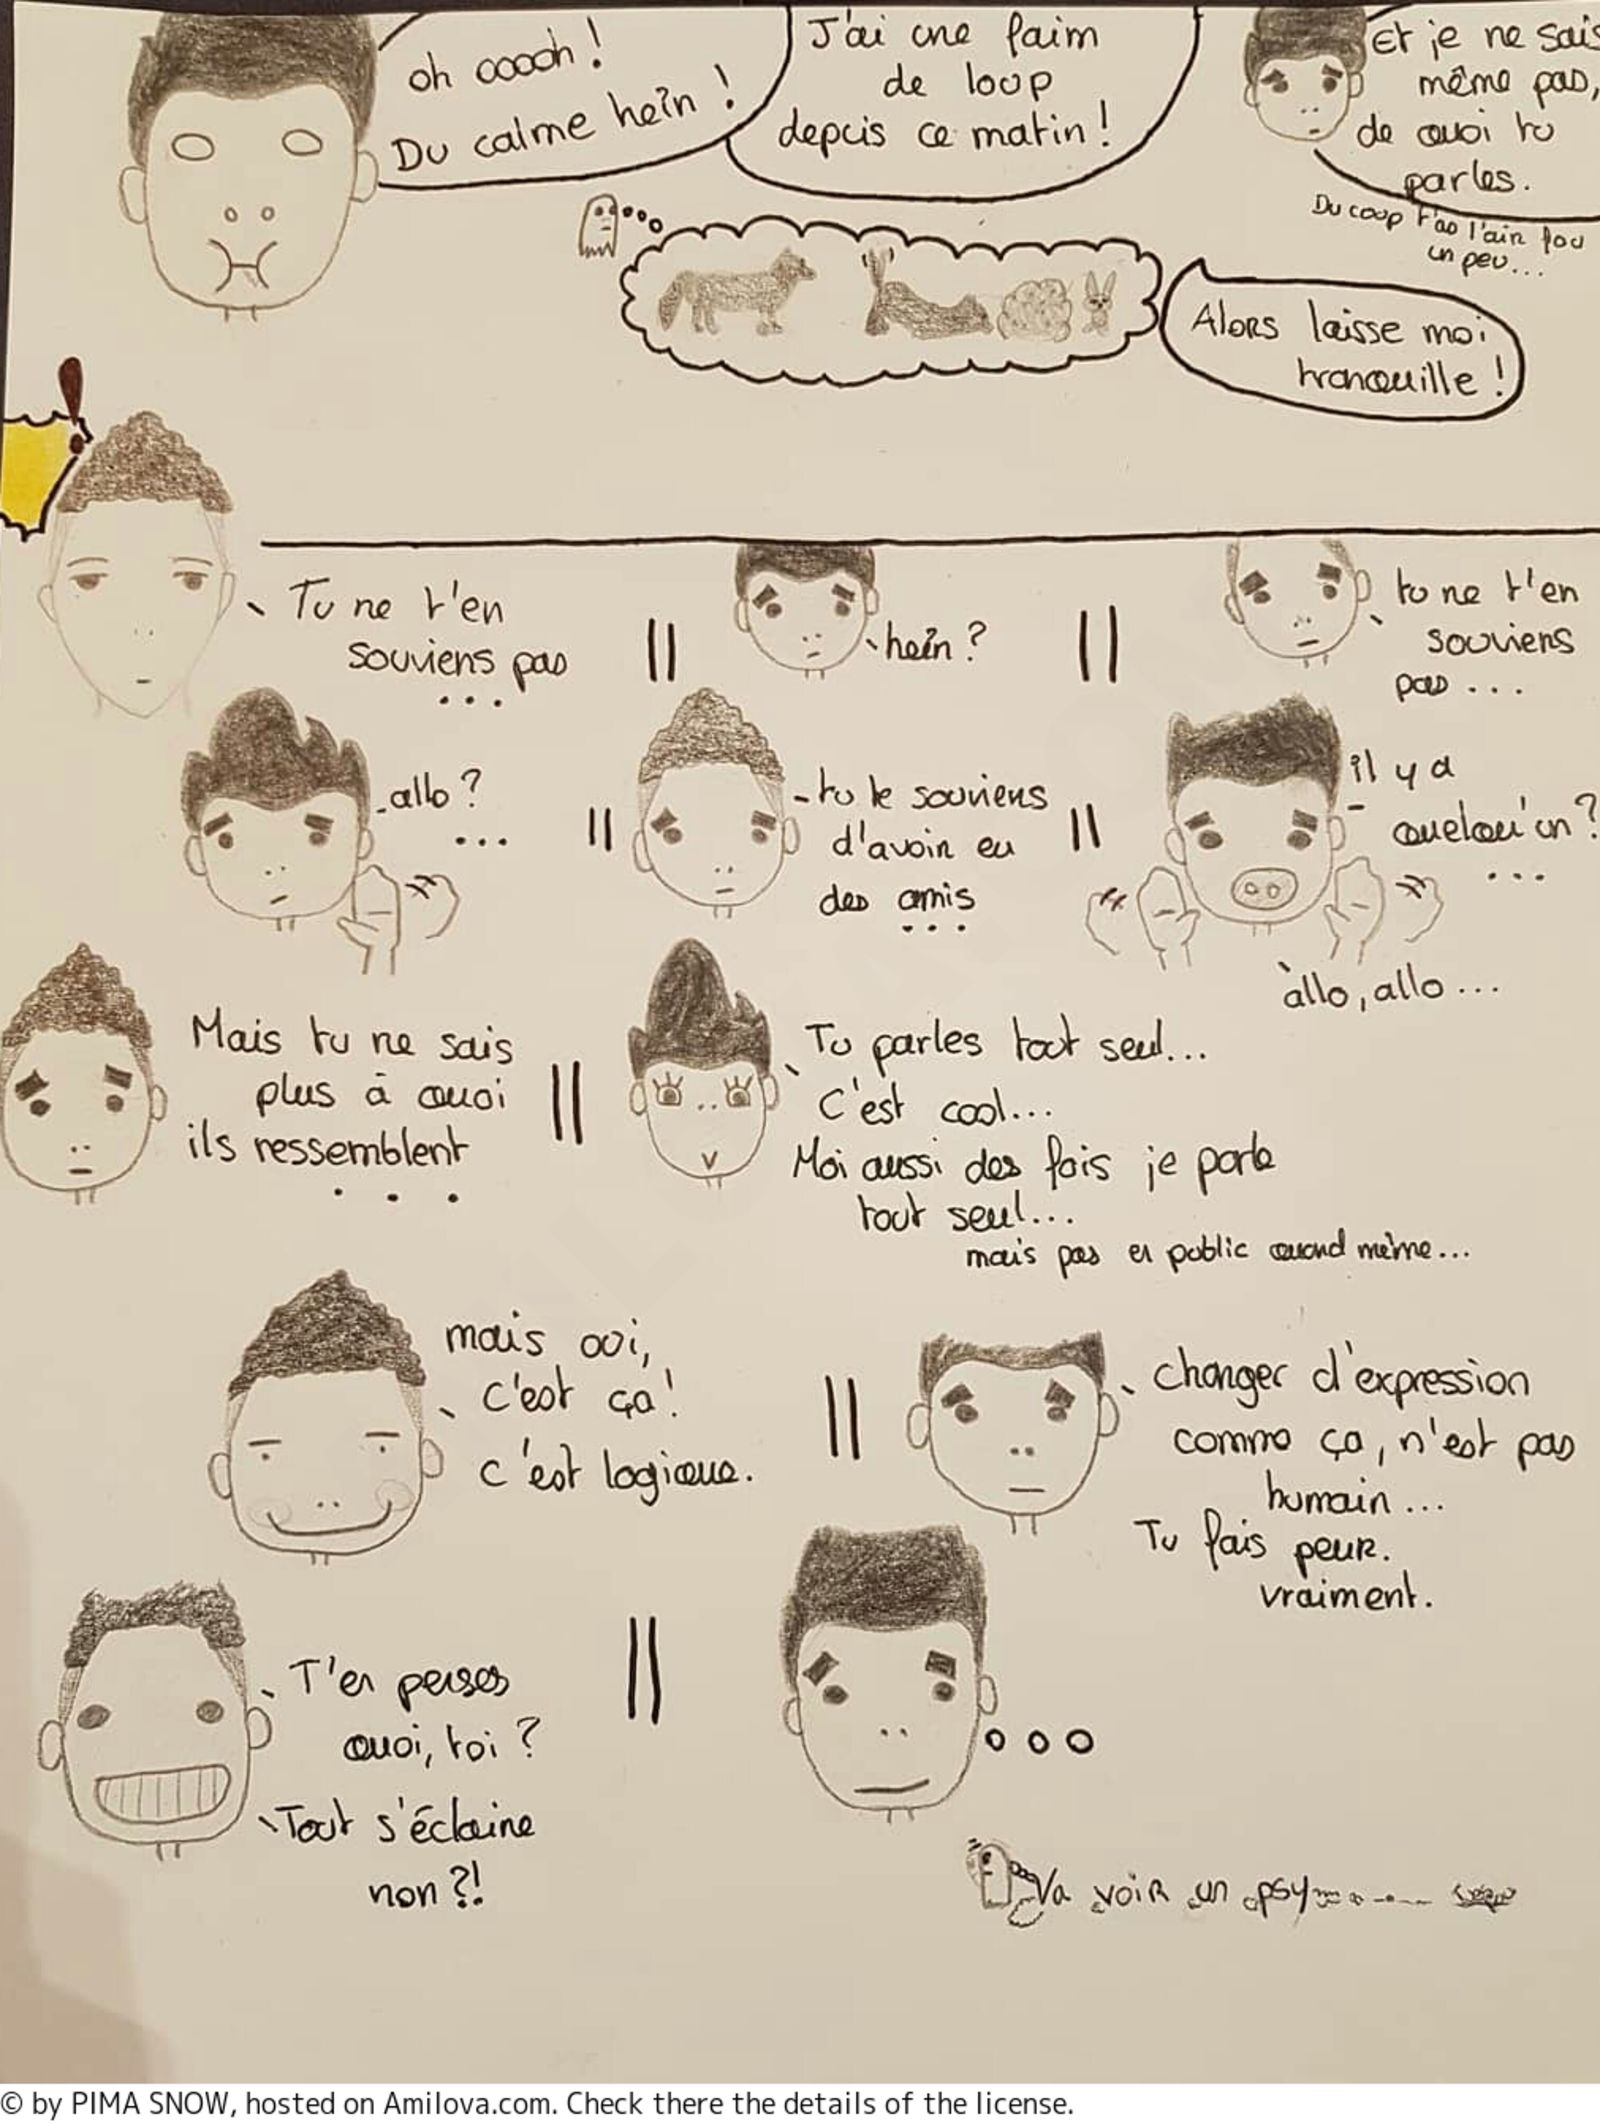 oh ooooh !
Du calme heîn !
J'ai une faim
de loup
depuis ce matin !
Et je ne sais
même pas,
de quoi tu
parles.
Du coup t'as l'air fou
un peu...
Alors laisse moi
tranquille !
Tu ne t'en
souviens pas
...
heîn ?
tu ne t'en
souviens
pas ...
allo ?
...
tu te souviens
d'avoir eu
des amis
...
il y a
quelqu'un ?
...
àllo, allo ...
Mais tu ne sais
plus à quoi
ils ressemblent
...
Tu parles tout seul...
C'est cool...
Moi aussi des fois je parle
tout seul...
mais pas en public quand même...
mais oui,
c'est ça !
c'est logique.
changer d'expression
comme ça, n'est pas
humain ...
Tu fais peur.
vraiment.
T'en penses
quoi, toi ?
Tout s'éclaire
non ?!
Va voir un psy
© by PIMA SNOW, hosted on Amilova.com. Check there the details of the license.